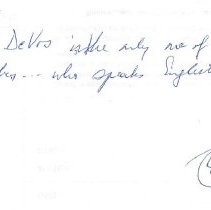 DeVos is the only one of
who speaks English